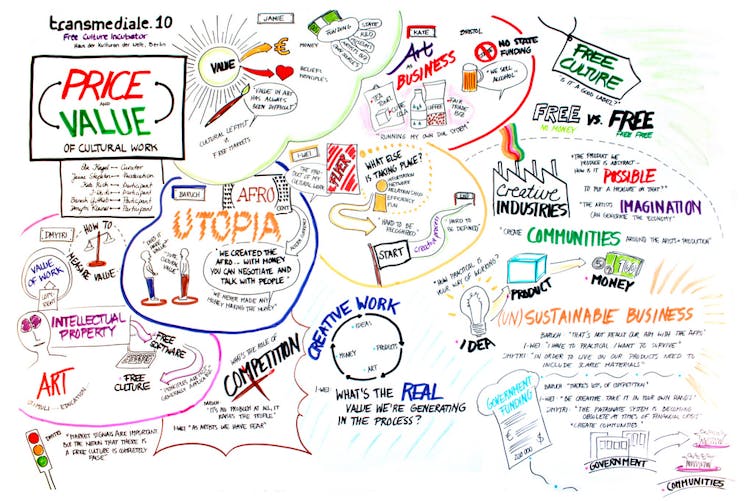 transmediale.10
Free Culture Incubator
Haus der Kulturen der Welt, Berlin
PRICE
AND
VALUE
OF CULTURAL WORK
Curator
Moderation
Participant
Participant
Participant
Participant
JANIE
VALUE
€
MONEY
BELIEFS
PRINCIPLES
FUNDING
STATE
R&D
"VALUE IN ART
HAS ALWAYS
BEEN DIFFICULT"
CULTURAL LEFTIST
VS
FREE MARKETS
KATE
BRISTOL
Art
AS
BUSINESS
NO STATE
FUNDING
"WE SELL
ALCOHOL"
TEA
CUBE
COLA
COFFEE
FAIR
TRADE
"RUNNING MY OWN DNS SYSTEM"
FREE
CULTURE
"IS IT A GOOD LABEL?"
FREE
NO MONEY
VS.
FREE
BARUCH
AFRO
CENT
UTOPIA
"WE CREATED THE
AFRO.. WITH MONEY
YOU CAN NEGOTIATE AND
TALK WITH PEOPLE"
"WE NEVER MADE ANY
MONEY MAKING THE MONEY"
I-WEI
FLYER
WHAT ELSE
IS TAKING PLACE?
INFORMATION
NETWORK
RELATIONSHIP
EFFICIENCY
FUN
"HARD TO BE
RECOGNISED"
START
creative process
END
"HARD TO
BE DEFINED"
creative
INDUSTRIES
"THE PRODUCT WE
PRODUCE IS ABSTRACT -
HOW IS IT POSSIBLE
TO PUT A MEASURE ON THAT?"
"THE ARTISTS IMAGINATION
CAN GENERATE THE ECONOMY"
"CREATE COMMUNITIES AROUND THE ARTISTS + PRODUCTION"
DMYTRI
HOW TO
MEASURE VALUE
VALUE
OF WORK
INTELLECTUAL
PROPERTY
FREE
SOFTWARE
FREE
CULTURE
ART
STIMULI
EDUCATION
DMYTRI
"MARKET SIGNALS ARE IMPORTANT
BUT THE NOTION THAT THERE IS
A FREE CULTURE IS COMPLETELY
FALSE"
WHAT'S THE ROLE OF
COMPETITION
BARUCH
"IT'S NO PROBLEM AT ALL, IT
RAISES THE PEOPLE"
I-WEI "AS ARTISTS WE HAVE FEAR"
CREATIVE WORK
IDEAS
PRODUCTS
ART
MONEY
I-WEI:
WHAT'S THE REAL
VALUE WE'RE GENERATING
IN THE PROCESS?
"HOW PRACTICAL IS
YOUR WAY OF WORKING?"
IDEA
PRODUCT
MONEY
(UN)SUSTAINABLE BUSINESS
BARUCH "THAT'S NOT REALLY OUR AIM WITH THE AFROS"
I-WEI "I HAVE TO PRACTICAL, I WANT TO SURVIVE"
DMYTRI "IN ORDER TO LIVE ON OUR PRODUCTS NEED TO
INCLUDE SCARCE MATERIALS"
GOVERNMENT
FUNDING
€
$
BARUCH "THERE'S LOTS OF COMPETITION"
I-WEI "BE CREATIVE. TAKE IT IN YOUR OWN HANDS"
DMYTRI: "THE PATRONATE SYSTEM IS BECOMING
OBSOLETE AT TIMES OF FINANCIAL CRISIS"
"CREATE COMMUNITIES"
GOVERNMENT
COMMUNITIES